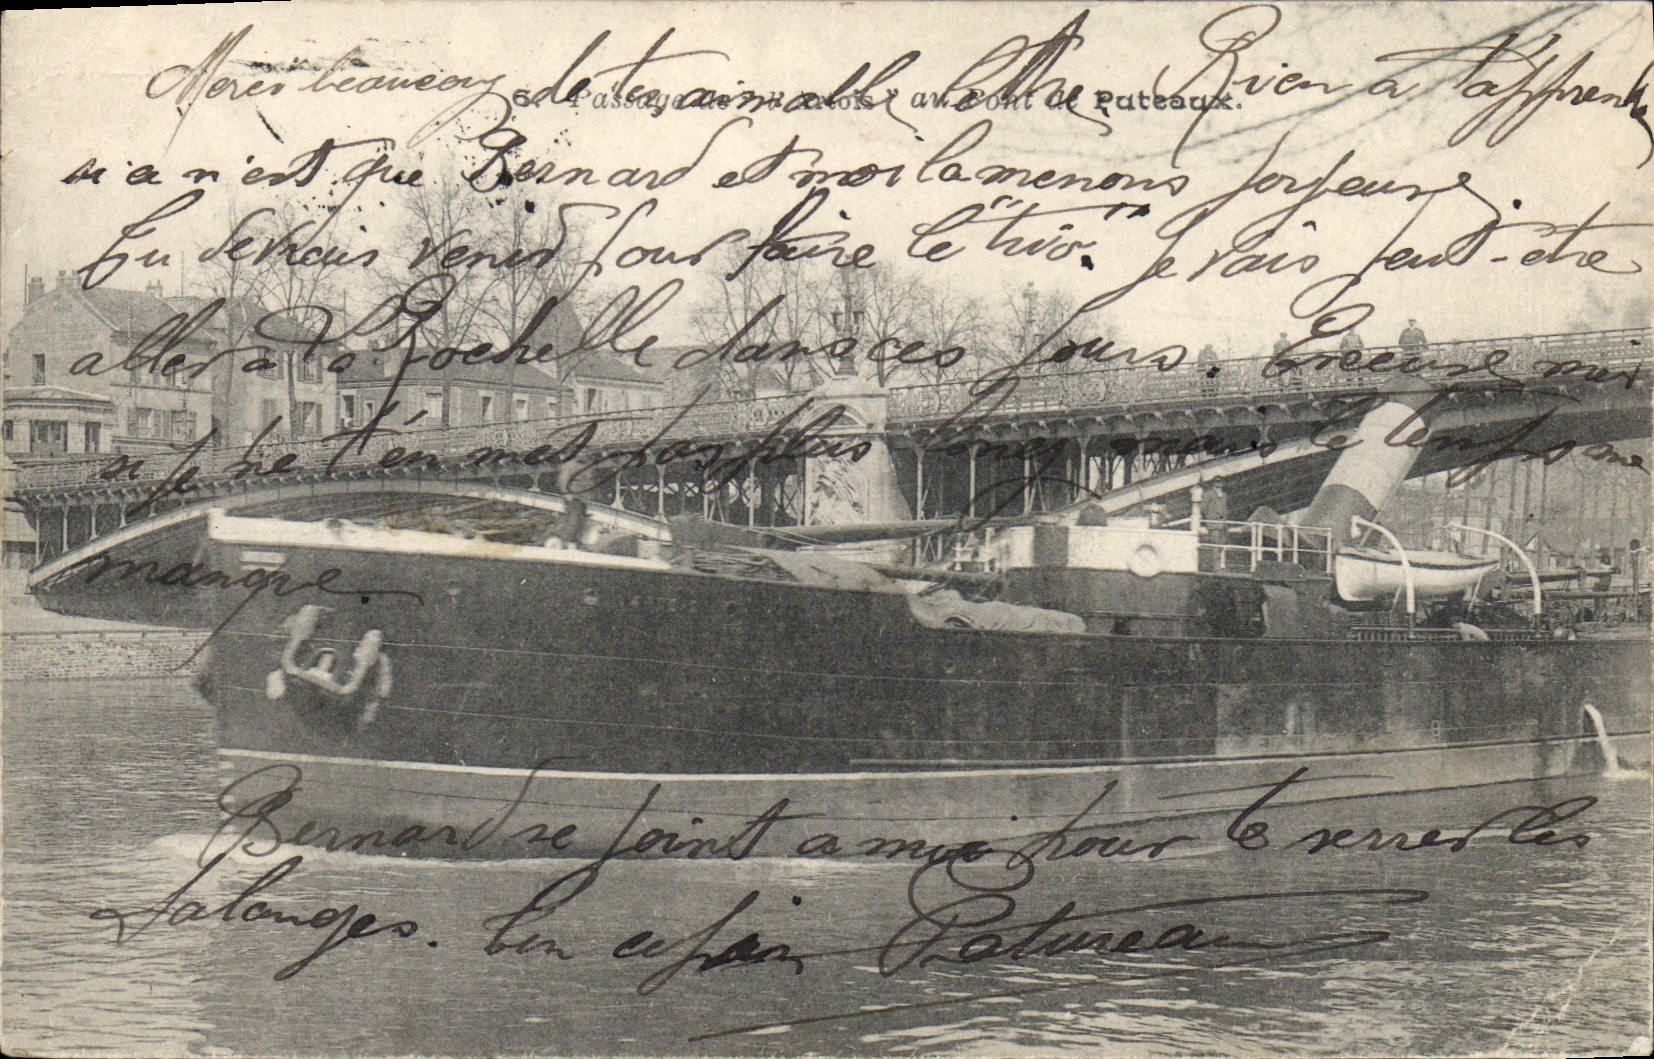 Merci beaucoup de ta aimable lettre Rien a t'apprendre
6. Passage de l' "Artois" au Pont de Puteaux.
si ce n'est que Bernard et moi la menons joyeuse.
Tu devrais venir pour faire le "trio". Je vais peut-etre
aller à La Rochelle dans ces jours. Excuse moi
si je ne t'en met pas plus long mais le temps me
manque.
Bernard se joint a moi pour te serrer les
phalanges. Ton copain Patureau